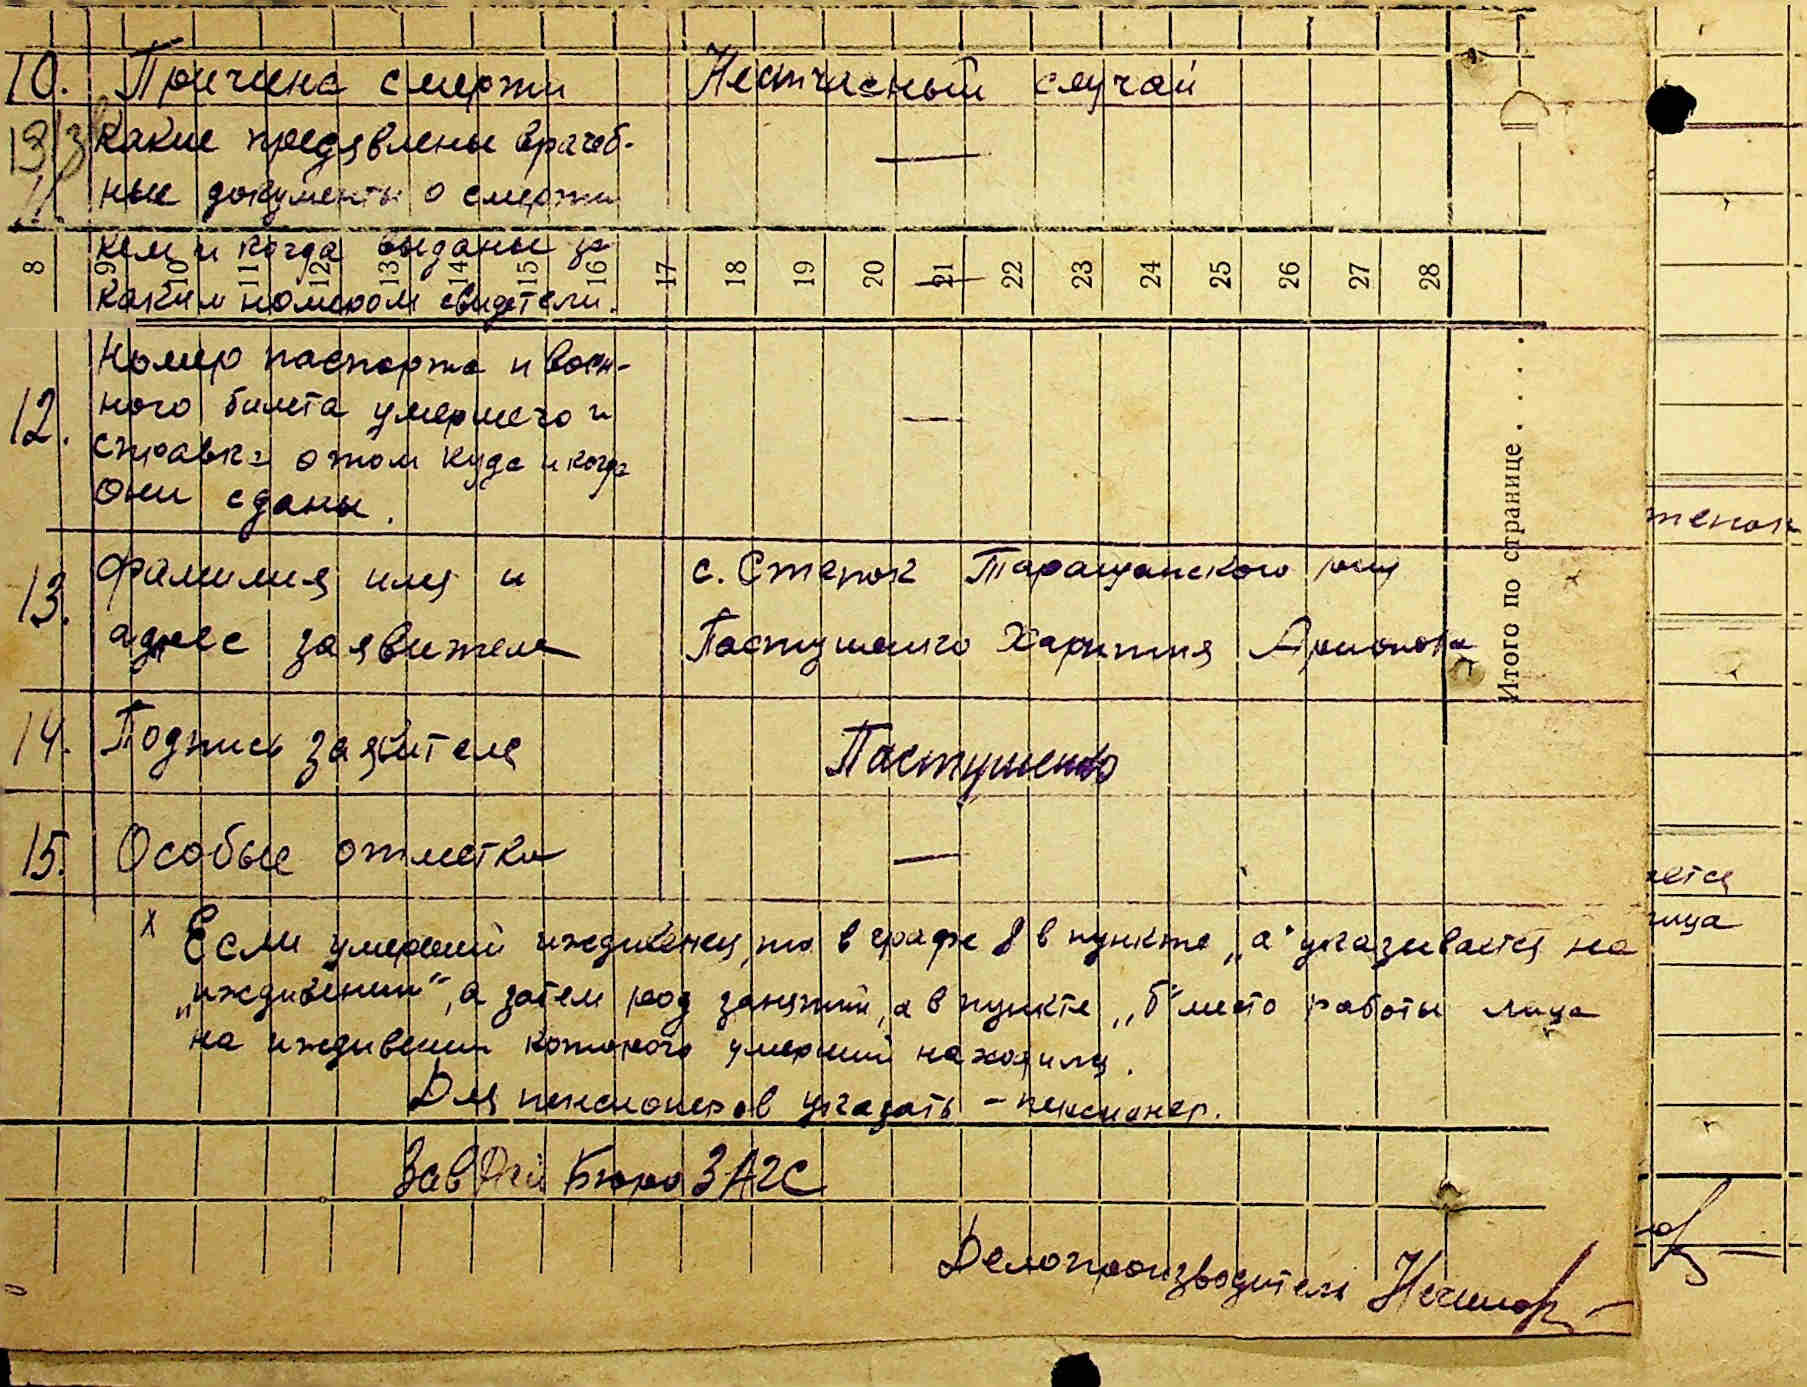 10. Причина смерти Несчасный случай
Какие предявлены врачеб-
11. ные документы о смерти —
кем и когда выданы за
каким номером свидетели. —
8 9 10 11 12 13 14 15 16 17 18 19 20 21 22 23 24 25 26 27 28
Номер паспорта и воен-
12. ного билета умершего и —
справка о том куда и когда
они сданы.
13. Фамилия имя и с. Степок Таращанского
адрес заявителя Пастушенко Харитина
14. Подпись заявителя Пастушенко
15. Особые отметки —
х Если умерший иждивенец, то в графе 8 в пункте „а“ указывается на
„иждивении“, а затем род занятий, а в пункте „б“ место работы лица
на иждивении которого умерший находился.
Для пенсионеров указать – пенсионер.
Зав Бюро ЗАГС
Делопроизводитель
Итого по странице . . . . .
тепок
ется
лица